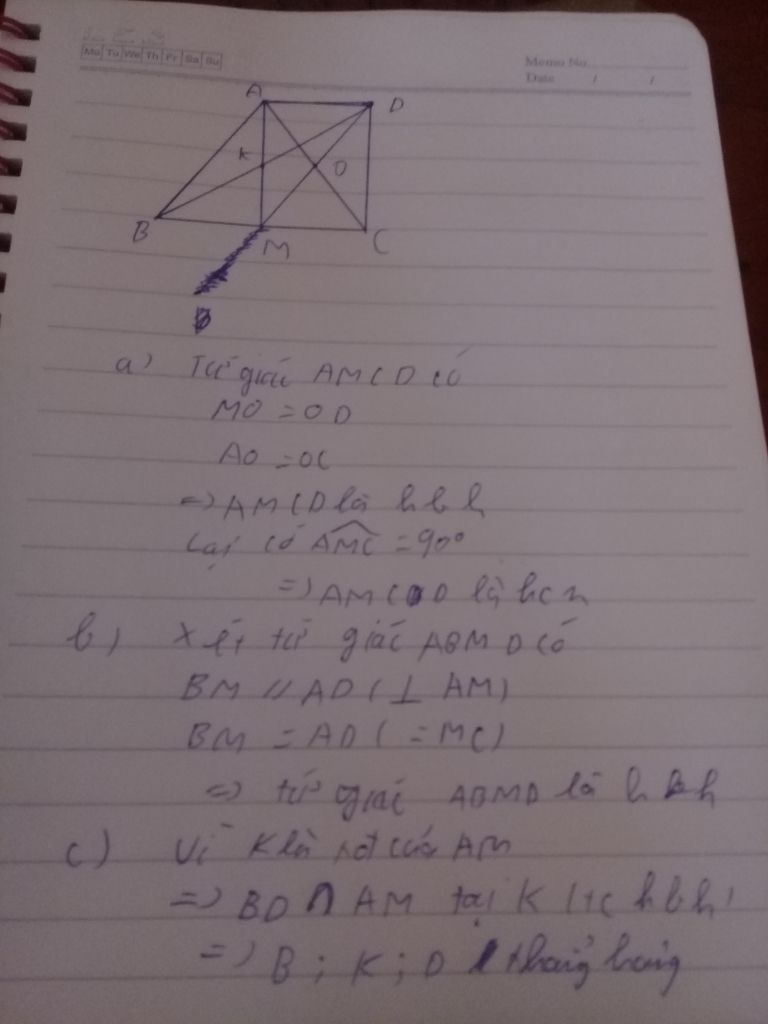 Mo Tu We Th Fr Sa Su
Memo No.
Date / /
A
D
K
O
B
M
C
a) Tứ giác AMCD có
MO = OD
AO = OC
=> AMCD là hbh
Lại có AMC = 90°
=> AMCD là hcn
b) Xét tứ giác ABMD có
BM // AD ( ⊥ AM)
BM = AD ( = MC)
=> tứ giác ABMD là hbh
c) Vì K là tđ của AM
=> BD ∩ AM tại K (tc hbh)
=> B ; K ; D thẳng hàng